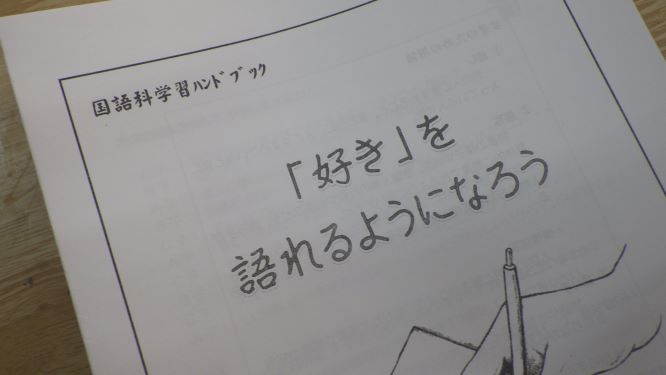 国語科学習ハンドブック
「好き」を
語れるようになろう